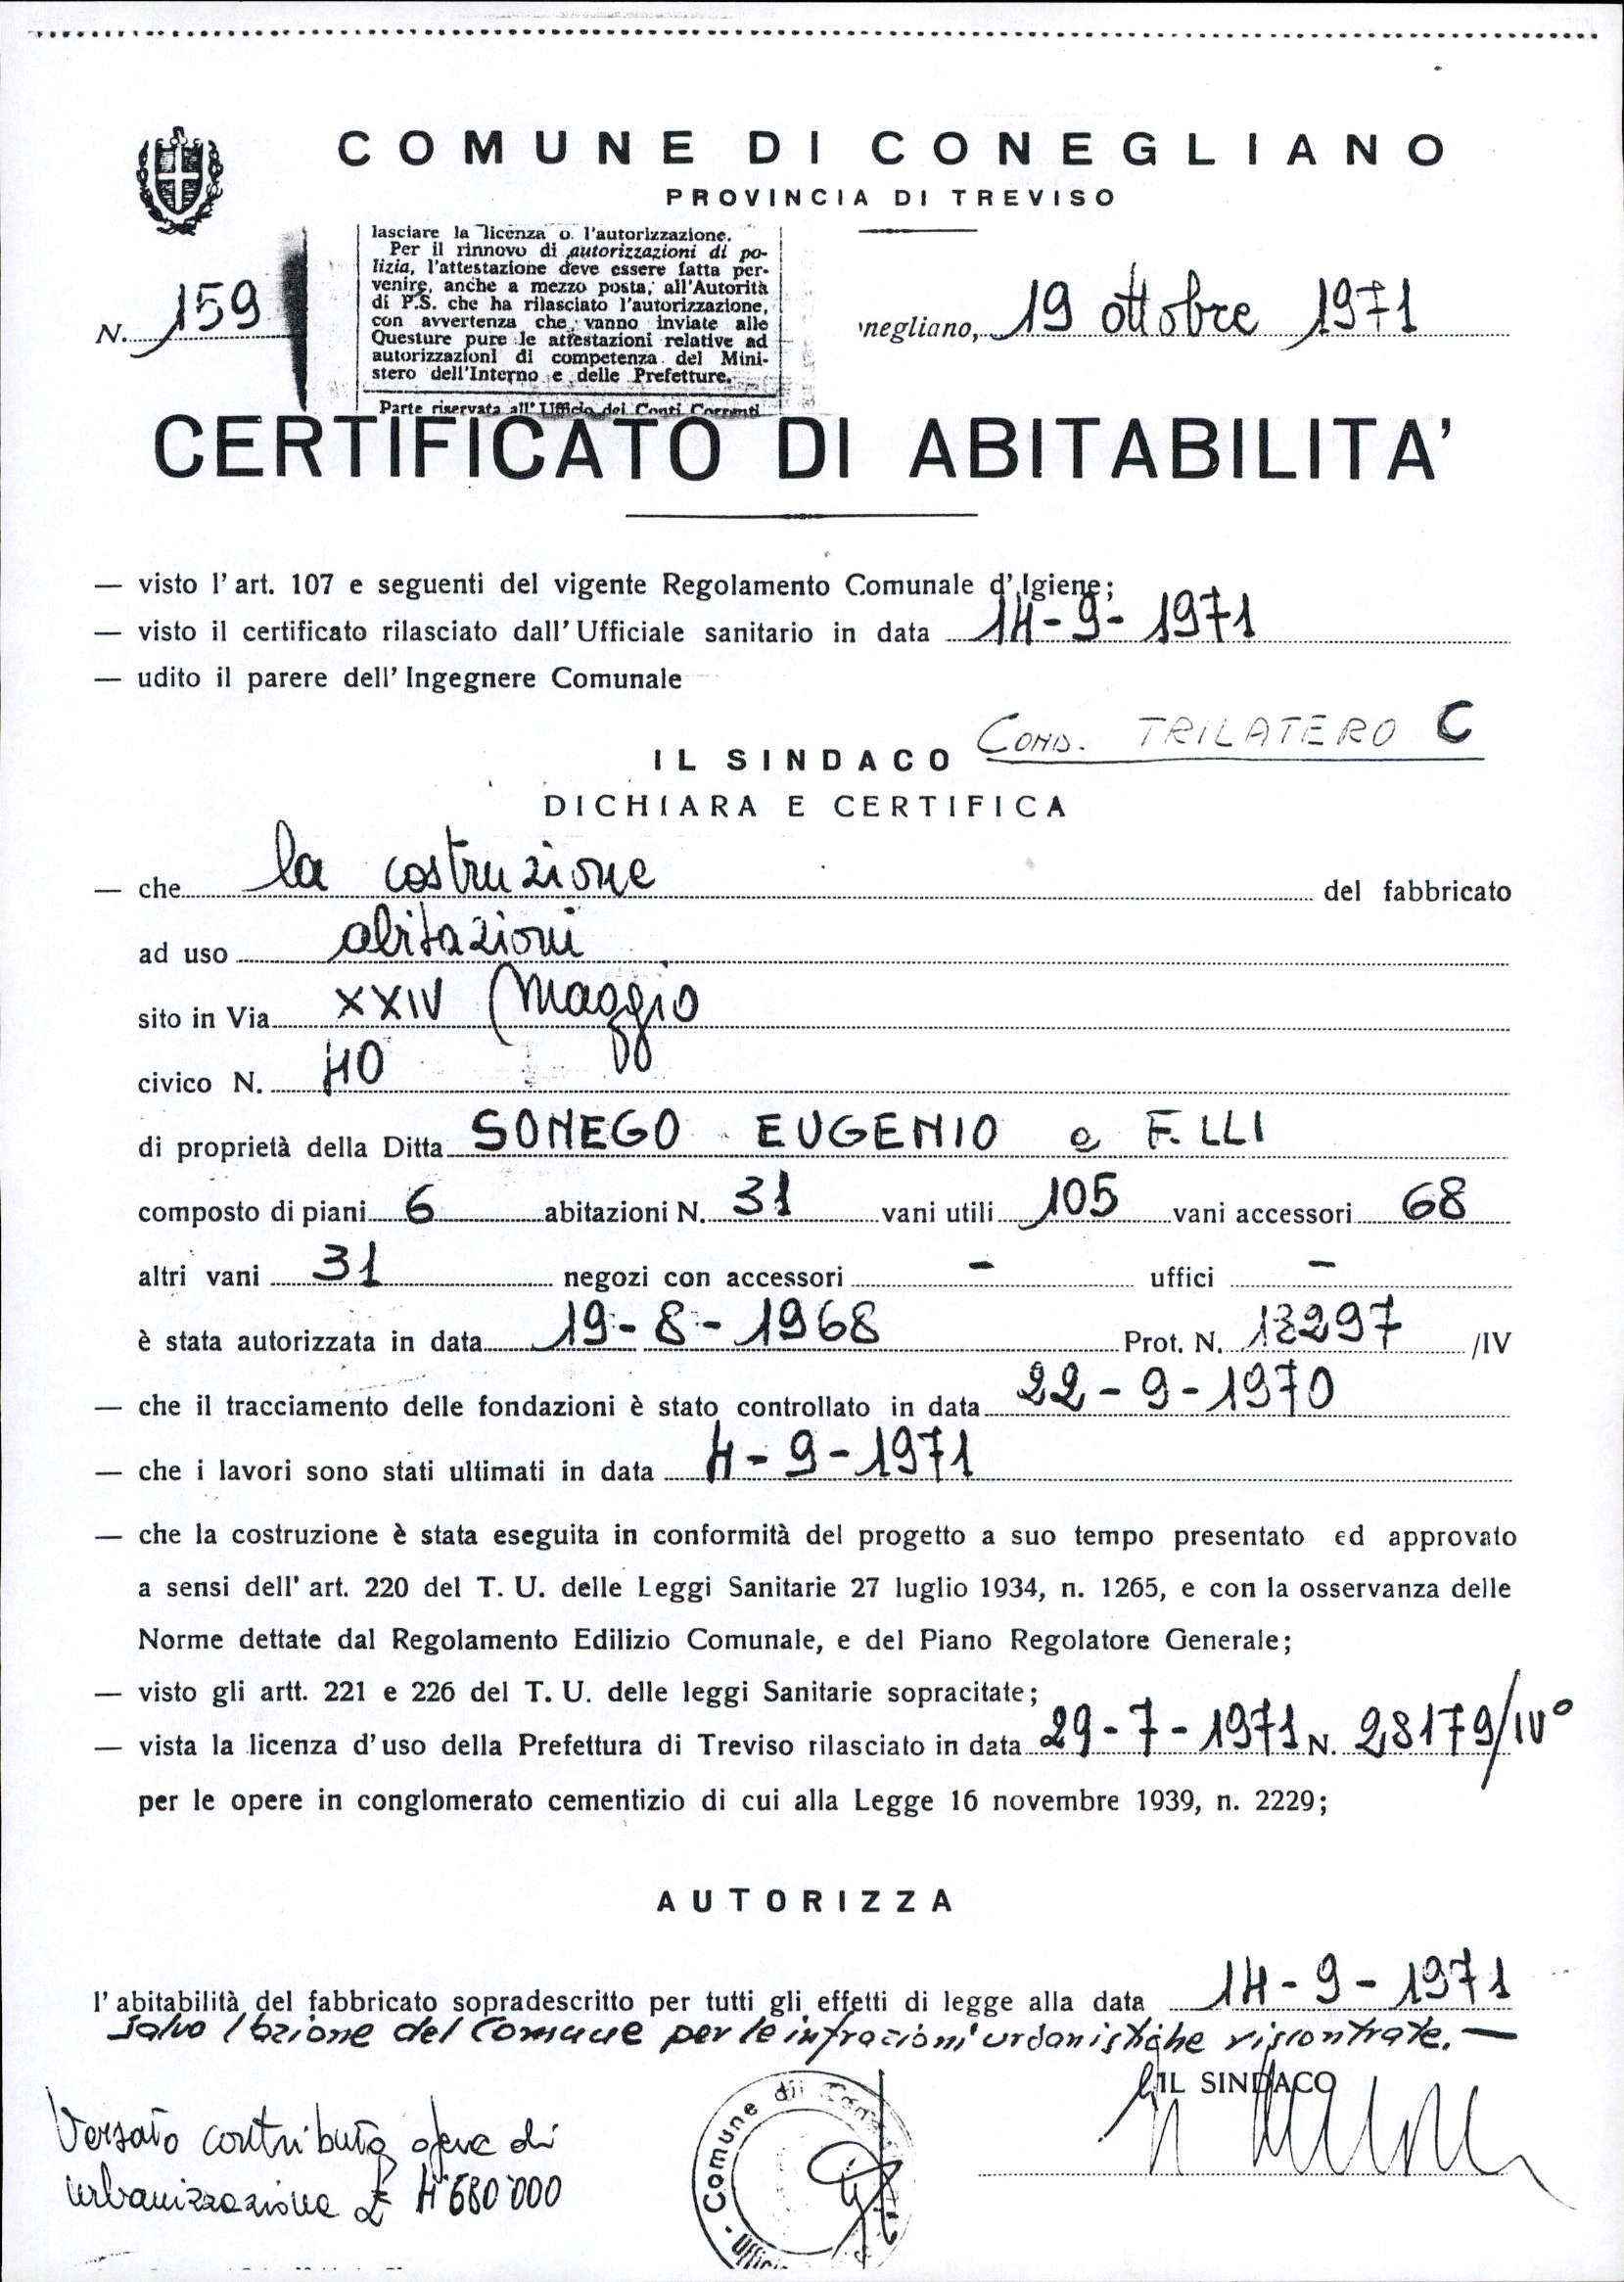 COMUNE DI CONEGLIANO
PROVINCIA DI TREVISO
lasciare la licenza o l'autorizzazione.
Per il rinnovo di autorizzazioni di po-
lizia, l'attestazione deve essere fatta per-
venire, anche a mezzo posta, all'Autorità
di P.S. che ha rilasciato l'autorizzazione,
con avvertenza che vanno inviate alle
Questure pure le attestazioni relative ad
autorizzazioni di competenza del Mini-
stero dell'Interno e delle Prefetture.
Parte riservata all'Ufficio dei Conti Correnti
N. 159
negliano, 19 ottobre 1971
CERTIFICATO DI ABITABILITA'
— visto l'art. 107 e seguenti del vigente Regolamento Comunale d'Igiene;
— visto il certificato rilasciato dall'Ufficiale sanitario in data 14-9-1971
— udito il parere dell'Ingegnere Comunale
COND. TRILATERO C
IL SINDACO
DICHIARA E CERTIFICA
— che la costruzione del fabbricato
ad uso abitazioni
sito in Via XXIV Maggio
civico N. 40
di proprietà della Ditta SONEGO EUGENIO e F.LLI
composto di piani 6 abitazioni N. 31 vani utili 105 vani accessori 68
altri vani 31 negozi con accessori - uffici -
è stata autorizzata in data 19-8-1968 Prot. N. /IV
— che il tracciamento delle fondazioni è stato controllato in data 22-9-1970
— che i lavori sono stati ultimati in data 4-9-1971
— che la costruzione è stata eseguita in conformità del progetto a suo tempo presentato ed approvato
a sensi dell'art. 220 del T. U. delle Leggi Sanitarie 27 luglio 1934, n. 1265, e con la osservanza delle
Norme dettate dal Regolamento Edilizio Comunale, e del Piano Regolatore Generale;
— visto gli artt. 221 e 226 del T. U. delle leggi Sanitarie sopracitate;
— vista la licenza d'uso della Prefettura di Treviso rilasciato in data 29-7-1971 N. 28179/IV°
per le opere in conglomerato cementizio di cui alla Legge 16 novembre 1939, n. 2229;
AUTORIZZA
l'abitabilità del fabbricato sopradescritto per tutti gli effetti di legge alla data 14-9-1971
salvo l'azione del Comune per le infrazioni urbanistiche riscontrate. —
IL SINDACO
Versato contributo opere di
urbanizzazione £ 4'680'000
Comune di